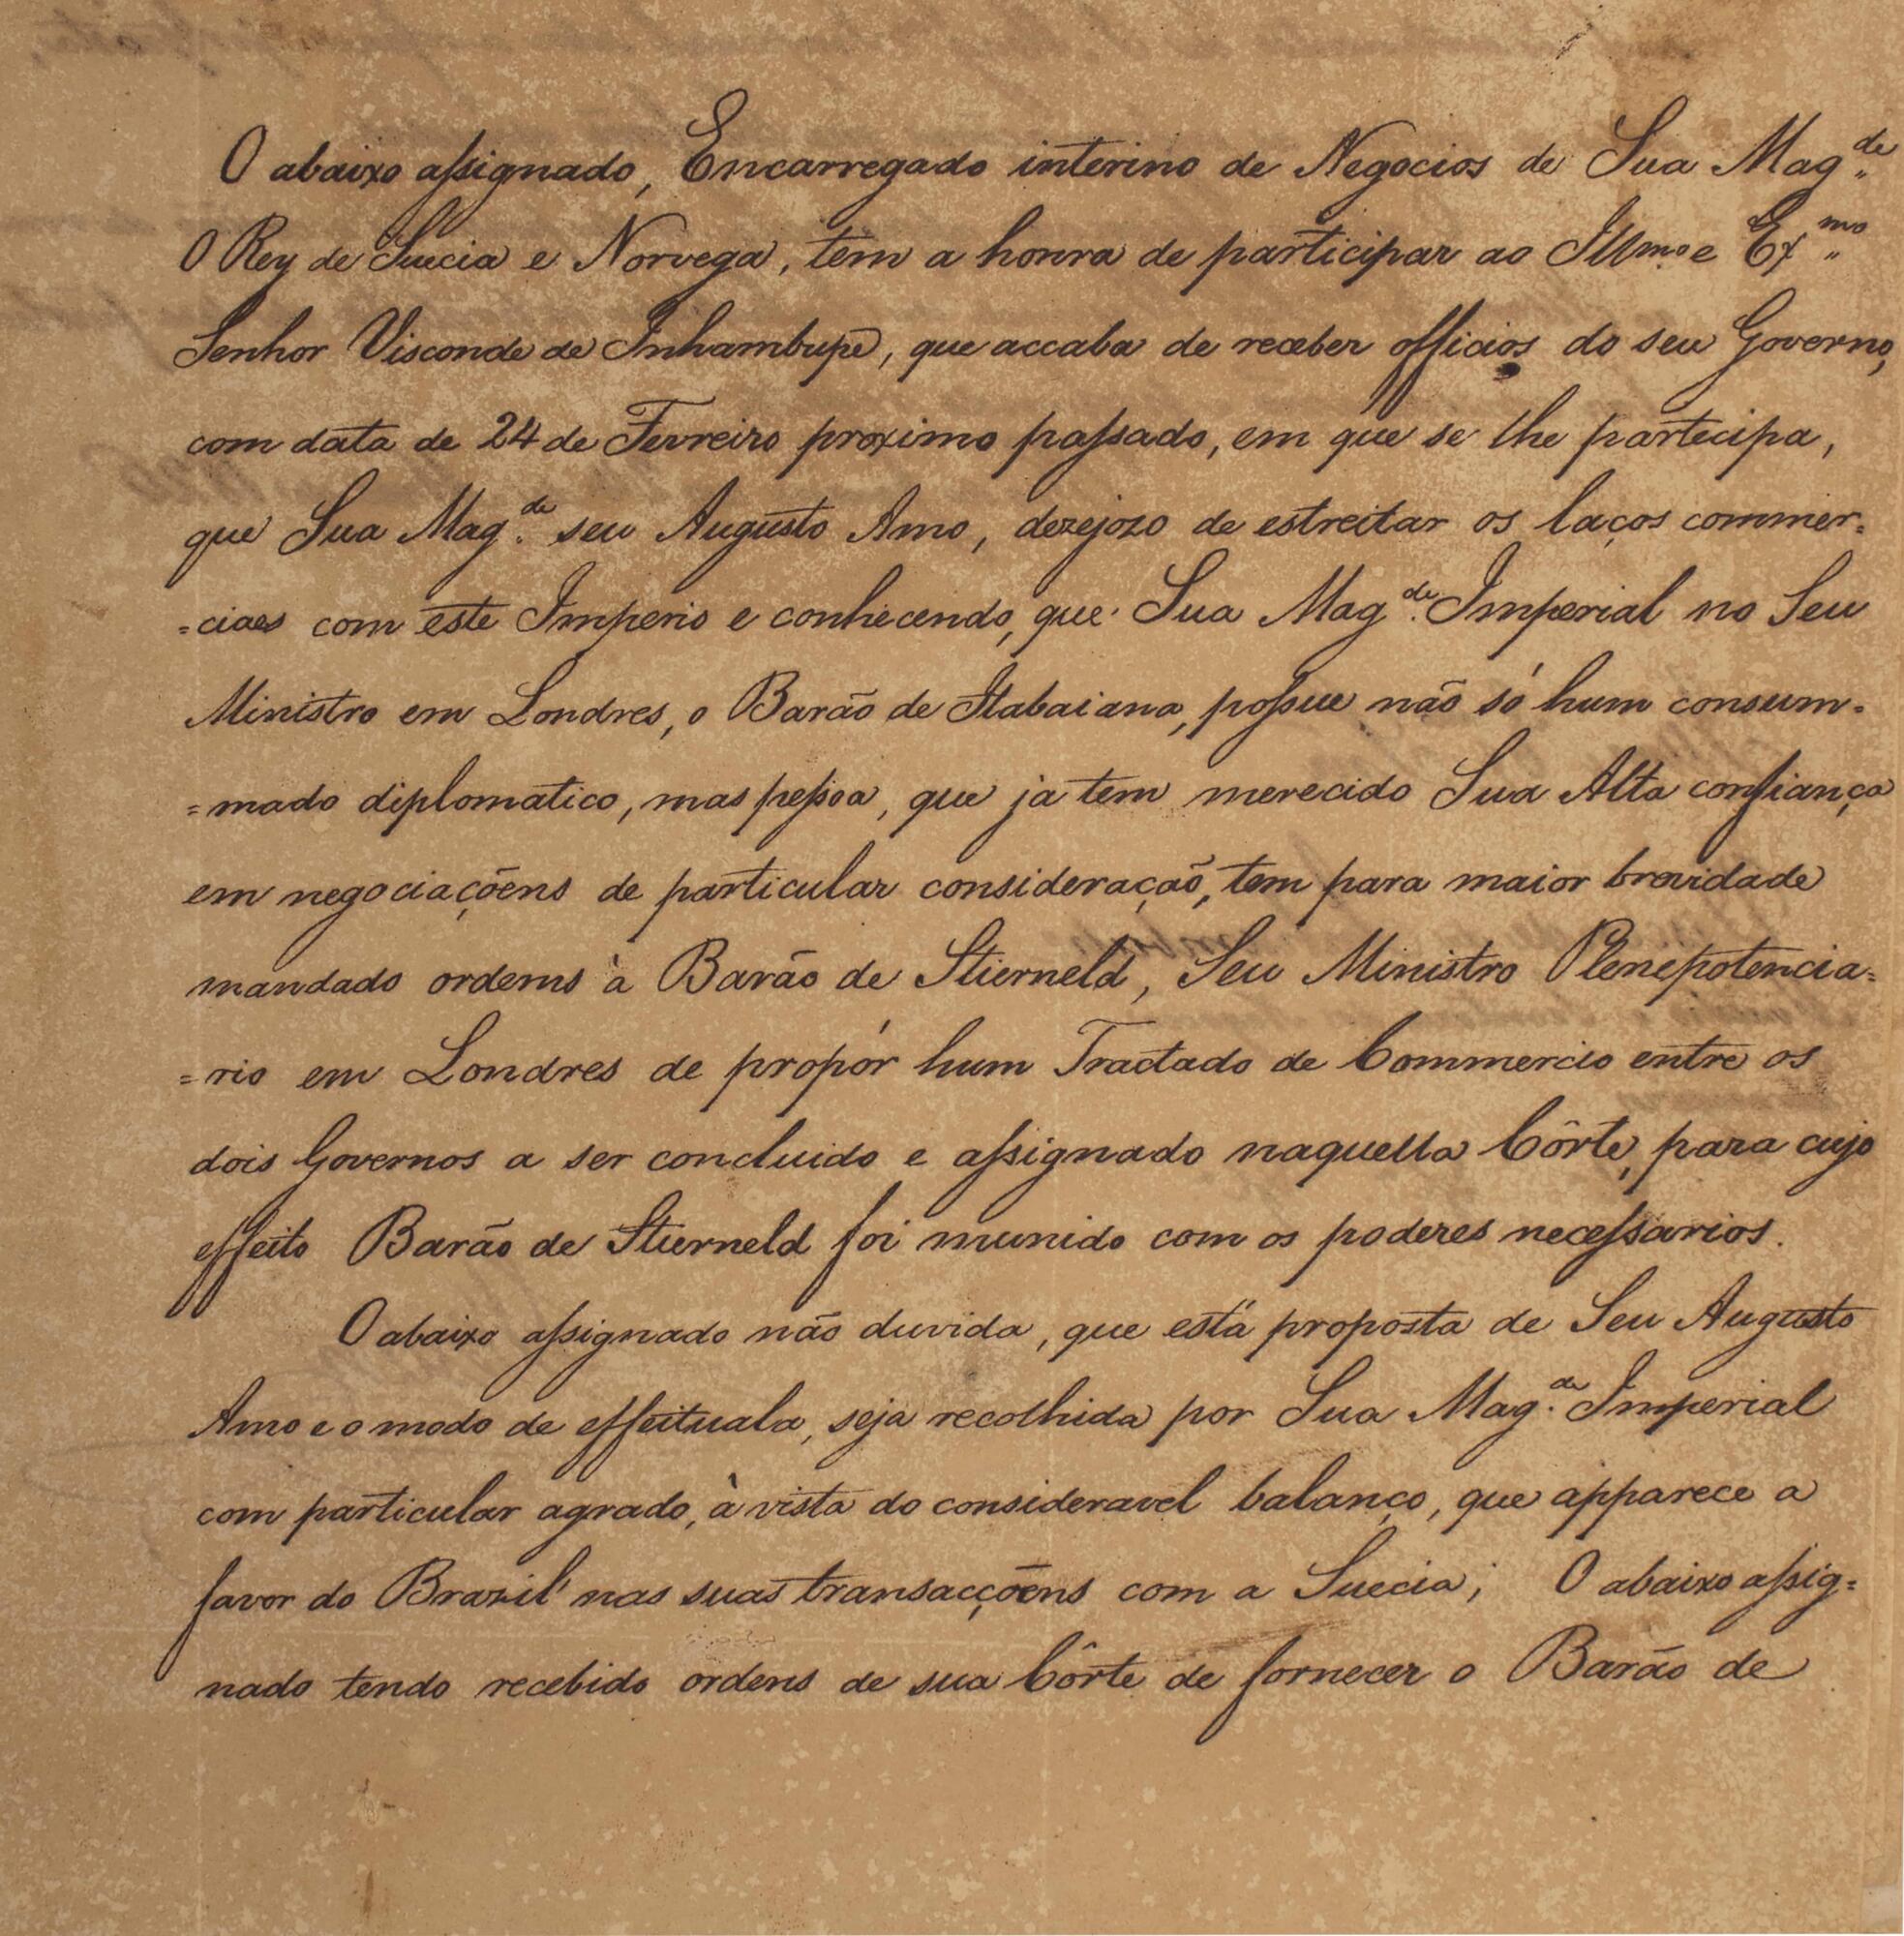 O abaixo assignado, Encarregado interino de Negocios de Sua Mag.de
O Rey de Suecia e Norvega, tem a honra de participar ao Illmo e Exmo
Senhor Visconde de Inhambupe, que accaba de receber officios do seu Governo,
com data de 24 de Fevreiro proximo passado, em que se lhe partecipa,
que Sua Mag.de seu Augusto Amo, dezejozo de estreitar os laços commer=
=ciaes com este Imperio e conhecendo, que Sua Mag.de Imperial no Seu
Ministro em Londres, o Barão de Itabaiana, possue não só hum consum=
=mado diplomatico, mas pessoa, que já tem merecido Sua Alta confiança
em negociaçõens de particular consideração, tem para maior brevidade
mandado ordems à Barão de Stierneld, Seu Ministro Plenepotencia=
=rio em Londres de propór hum Tractado de Commercio entre os
dois Governos a ser concluido e assignado naquella Côrte, para cujo
effeito Barão de Stierneld foi munido com os poderes necessarios.
O abaixo assignado não duvida, que esta proposta de Seu Augusto
Amo e o modo de effeituala, seja recolhida por Sua Mag.de Imperial
com particular agrado, à vista do consideravel balanço, que apparece a
favor do Brazil nas suas transacçõens com a Suecia; O abaixo assig=
nado tendo recebido ordens de sua Côrte de fornecer o Barão de